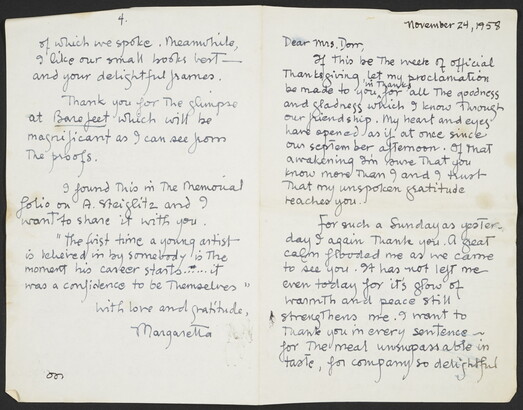 4.
of which we spoke. Meanwhile,
I like our small books best—
and your delightful frames.
Thank you for the glimpse
at Barefeet which will be
magnificant as I can see from
the proofs.
I found this in the Memorial
folio on A. Steiglitz and I
want to share it with you.
"The first time a young artist
is believed in by somebody is the
moment his career starts......it
was a confidence to be themselves"
with love and gratitude,
Margaretta
November 24, 1958
Dear Mrs. Dorr,
If this be the week of official
Thanksgiving, let my proclamation
in thanks
be made to you for all the goodness
and gladness which I know through
our friendship. My heart and eyes
have opened as if at once since
our september afternoon. Of that
awakening I'm sure that you
know more than I and I trust
that my unspoken gratitude
reaches you.
For such a Sunday as yester-
day I again thank you. A great
calm flooded me as we came
to see you. It has not left me
even today for it's glow of
warmth and peace still
strengthens me. I want to
thank you in every sentence—
for the meal unsurpassable in
taste, for company so delightful